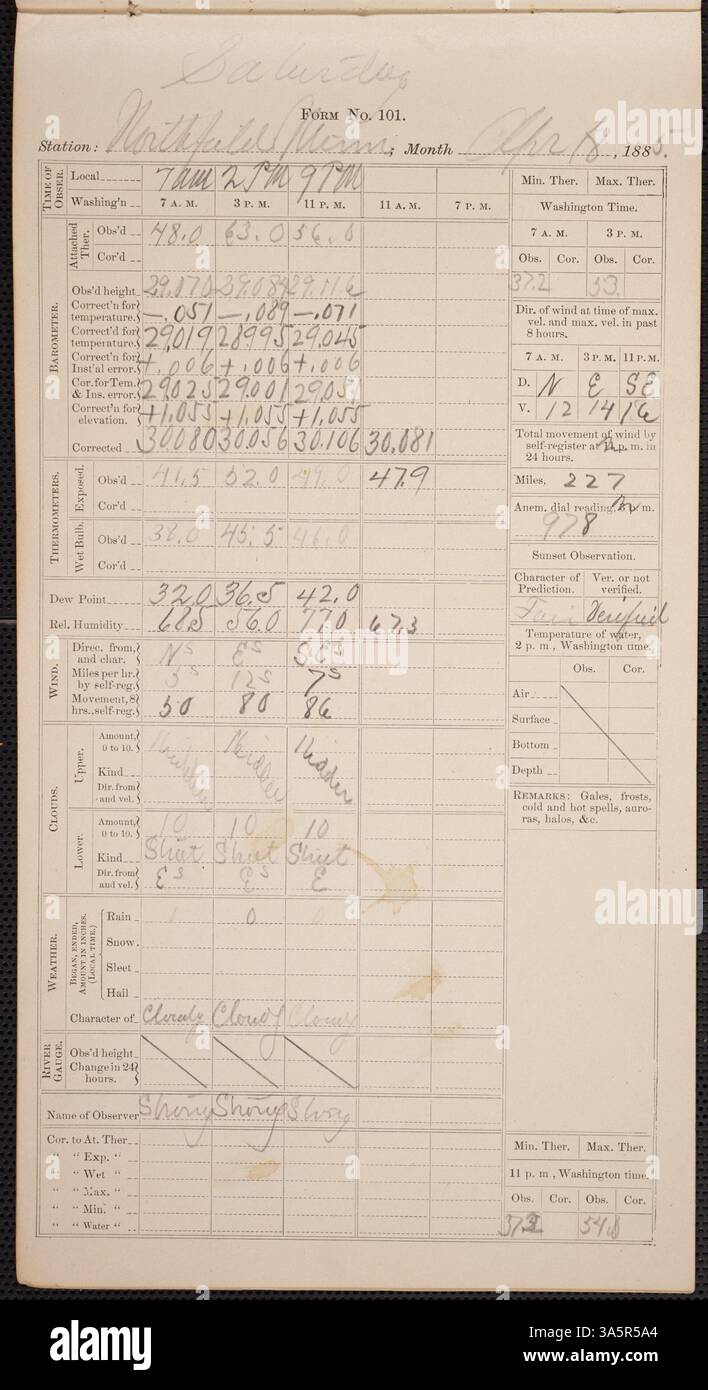 Saturday
FORM NO. 101.
Station: Northfield Minn; Month Apr 18, 1885.
TIME OF OBSER.
Local 7 am 2 PM 9 PM
Washing'n 7 A. M. 3 P. M. 11 P. M. 11 A. M. 7 P. M.
BAROMETER.
Attached Ther.
Obs'd 48.0 63.0 56.0
Cor'd
Obs'd height 29.070 29.084 29.116
Correct'n for temperature. —.051 —.089 —.071
Correct'd for temperature. 29.019 28.995 29.045
Correct'n for Inst'al error. +.006 +.006 +.006
Cor. for Tem. & Ins. error. 29.025 29.001 29.051
Correct'n for elevation. +1.055 +1.055 +1.055
Corrected 30.080 30.056 30.106 30.081
THERMOMETERS.
Exposed.
Obs'd 41.5 52.0 49.0 47.9
Cor'd
Wet Bulb.
Obs'd 38.0 45.5 46.0
Cor'd
Dew Point 32.0 36.5 42.0
Rel. Humidity 68.5 56.0 77.0 67.3
WIND.
Direc. from, and char. N s E s SE s
Miles per hr. by self-reg. 3 s 12 s 7 s
Movement, 8 hrs., self-reg. 50 80 86
CLOUDS.
Upper.
Amount, 0 to 10. Hidden Hidden Hidden
Kind
Dir. from and vel.
Lower.
Amount, 0 to 10. 10 10 10
Kind Strat Strat Strat
Dir. from and vel. E s E s E
WEATHER.
BEGAN, ENDED, AMOUNT IN INCHES. (LOCAL TIME.)
Rain 0 0
Snow.
Sleet
Hail
Character of Cloudy Cloudy Cloudy
RIVER GAUGE.
Obs'd height
Change in 24 hours.
Name of Observer Strong Strong Strong
Cor. to At. Ther.
" " Exp. "
" " Wet "
" " Max. "
" " Min. "
" " Water "
Min. Ther. Max. Ther.
Washington Time.
7 A. M. 3 P. M.
Obs. Cor. Obs. Cor.
37.2 53.
Dir. of wind at time of max. vel. and max. vel. in past 8 hours.
7 A. M. 3 P. M. 11 P. M.
D. N E SE
V. 12 14 16
Total movement of wind by self-register at p. m. in 24 hours.
Miles, 227
Anem. dial reading, m.
978
Sunset Observation.
Character of Prediction. Ver. or not verified.
Fair Verified
Temperature of water, 2 p. m., Washington time.
Obs. Cor.
Air
Surface
Bottom
Depth
REMARKS: Gales, frosts, cold and hot spells, auroras, halos, &c.
Min. Ther. Max. Ther.
11 p. m., Washington time.
Obs. Cor. Obs. Cor.
37.2 54.8
alamy
a
alamy
Image ID: 3A5R5A4
www.alamy.com